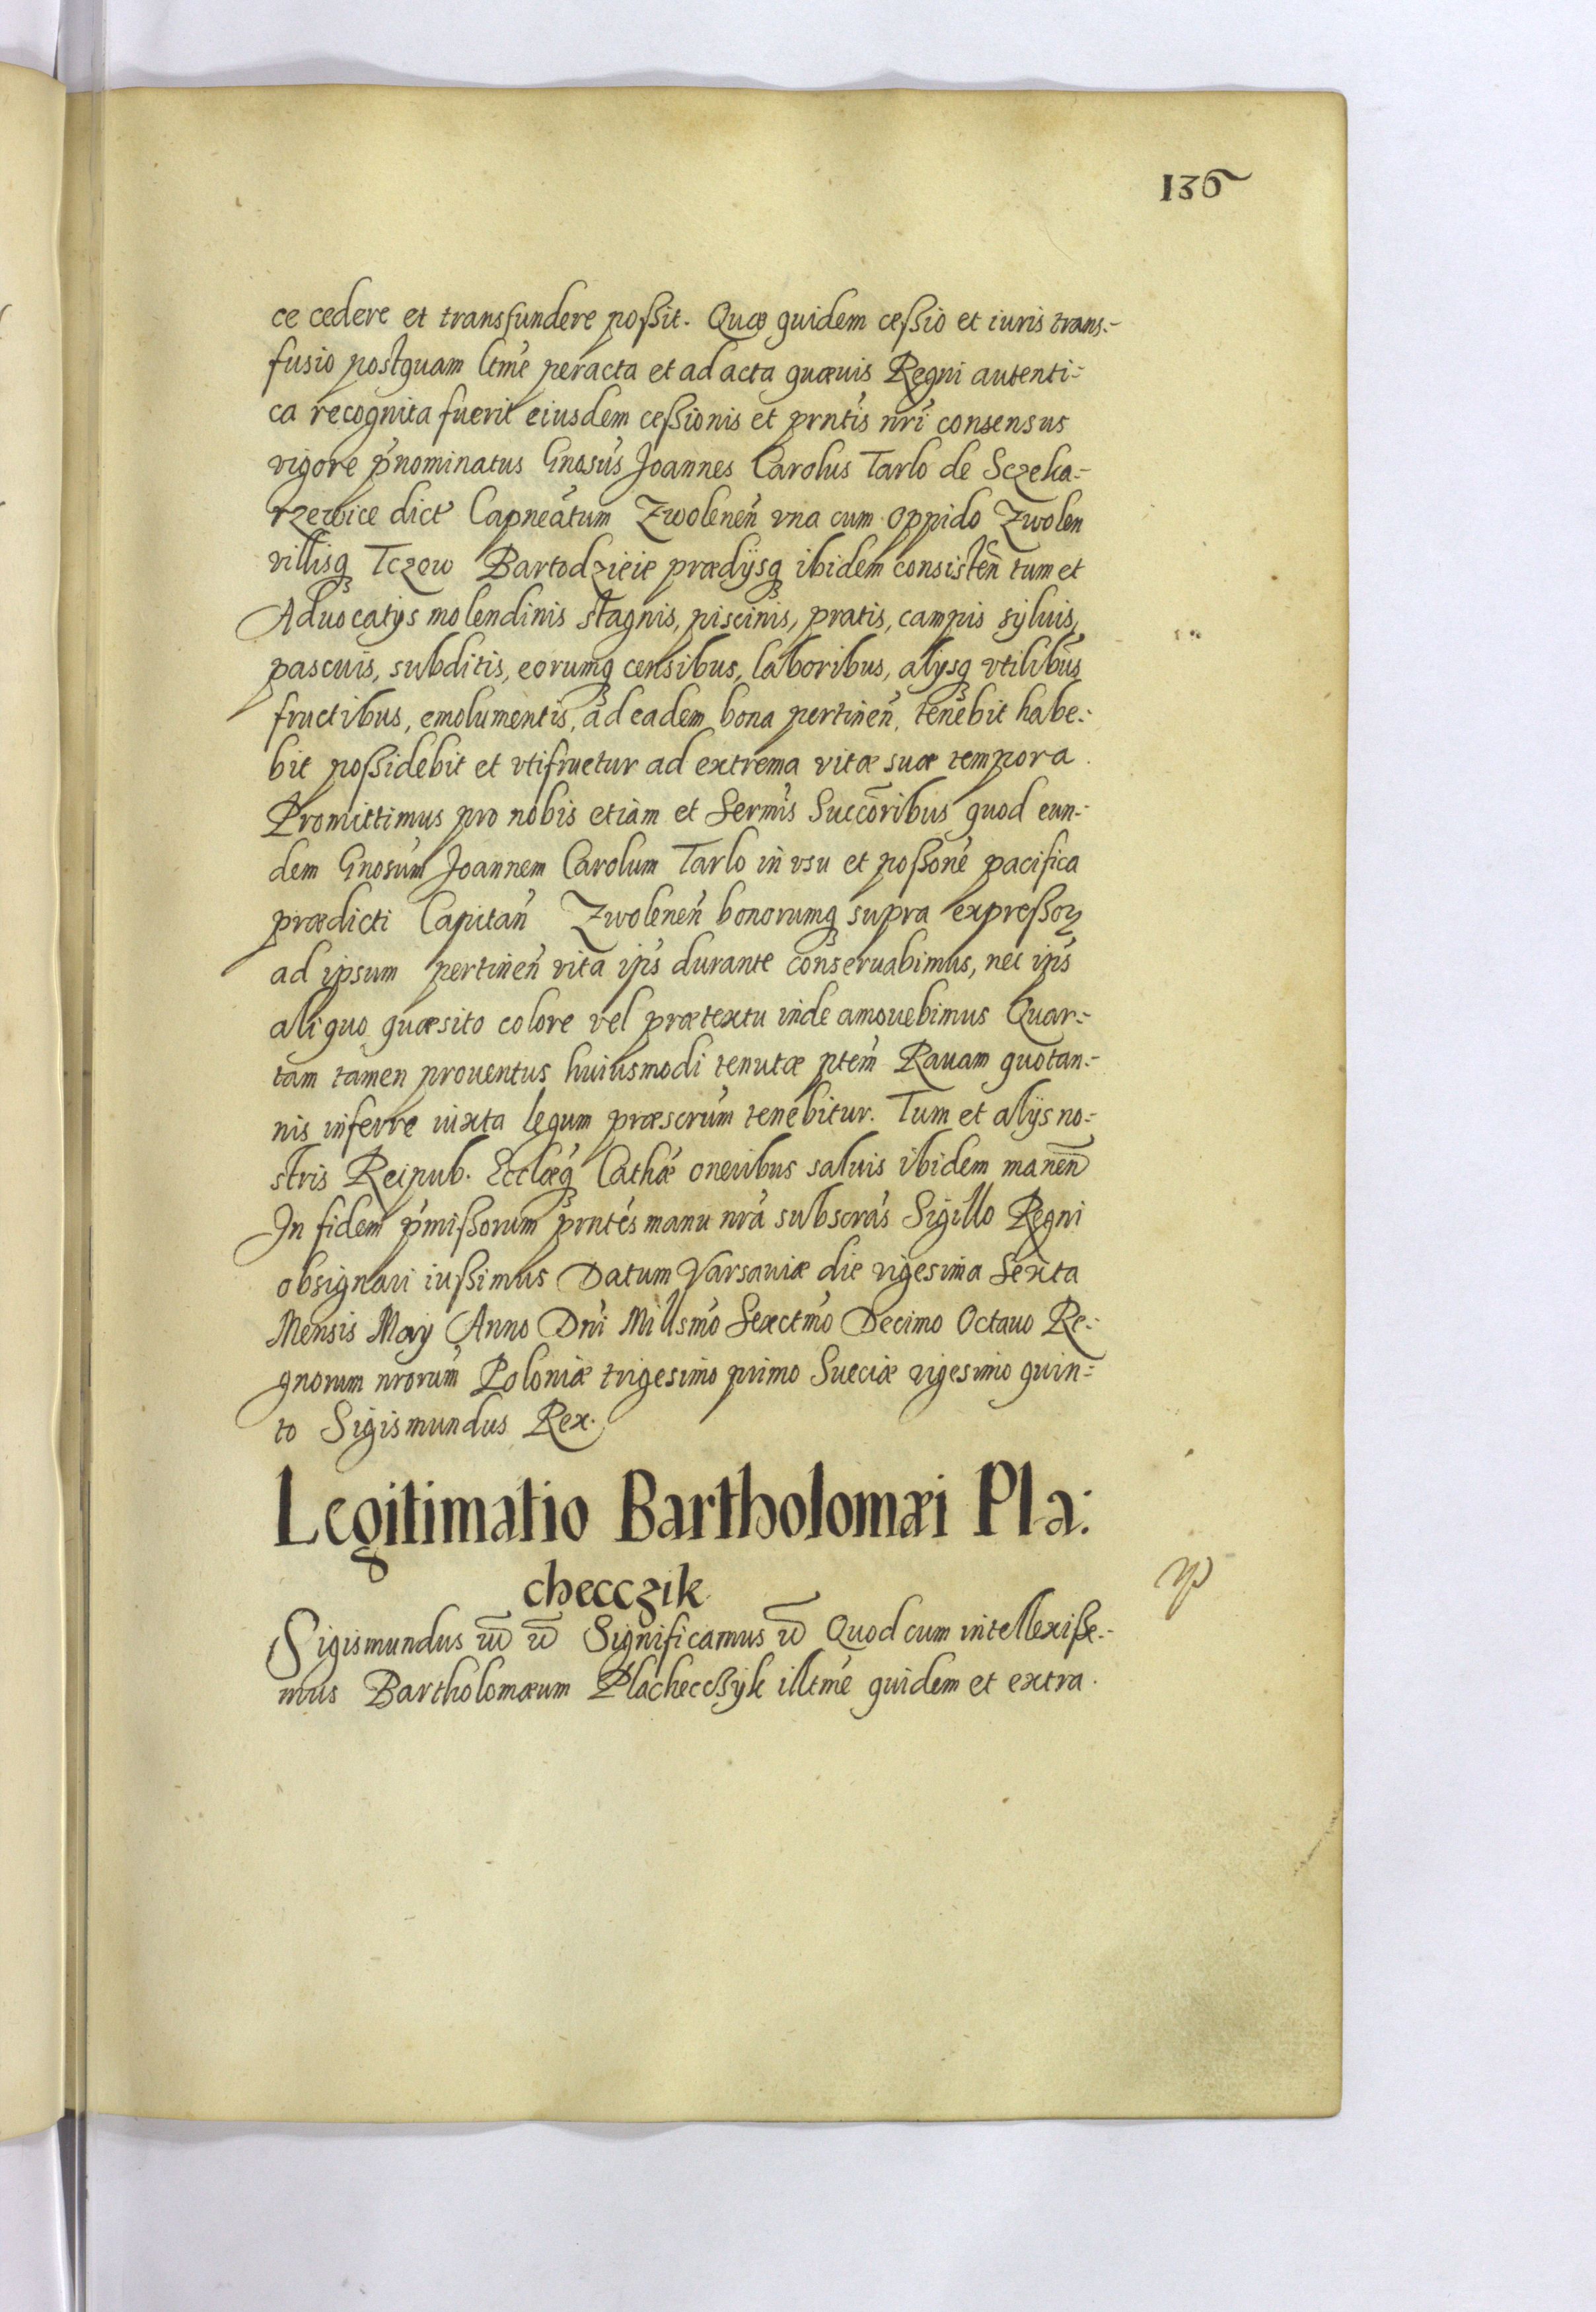 136
ce cedere et transfundere poßit. Quæ quidem ceßio et iuris trans-
fusio postquam ltme peracta et ad acta quæuis Regni autenti-
ca recognita fuerit eiusdem ceßionis et prntis nri consensus
vigore pnominatus Gnosus Joannes Carolus Tarlo de Sczeka-
rzewice dict Capneatum Zwolenen vna cum oppido Zwolen
villisq Tczow Bartodzieie prædijsq ibidem consisten tum et
Aduocatijs molendinis stagnis, piscinis, pratis, campis syluis,
pascuis, subditis, eorumq censibus, laboribus, alijsq vtilibus
fructibus, emolumentis, ad eadem bona pertinen, tenebit habe-
bit poßidebit et vtifruetur ad extrema vitæ suæ tempora.
Promittimus pro nobis etiam et Sermis Succoribus quod eun-
dem Gnosum Joannem Carolum Tarlo in vsu et poßone pacifica
prædicti Capitan Zwolenen bonorumq supra expreßoꝝ
ad ipsum pertinen vita ips durante conseruabimus, nec ips
aliquo quæsito colore vel prætextu inde amouebimus Quar-
tam tamen prouentus huiusmodi tenutæ ptem Rauam quotan-
nis inferre iuxta legum præscrum tenebitur. Tum et alijs no-
stris Reipub. Ecclæq Cathæ oneribus saluis ibidem manen
In fidem pmißorum prntes manu nra subscras Sigillo Regni
obsignari iußimus Datum Varsauiæ die vigesima Sexta
Mensis Maij Anno Dni Millsmo Sexctmo Decimo Octauo Re-
gnorum nrorum Poloniæ trigesimo primo Sueciæ vigesimo quin-
to Sigismundus Rex.
Legitimatio Bartholomæi Pla:
checczik
Sigismundus Significamus Quod cum intellexiße-
mus Bartholomæum Placheccsyk illtme quidem et extra.